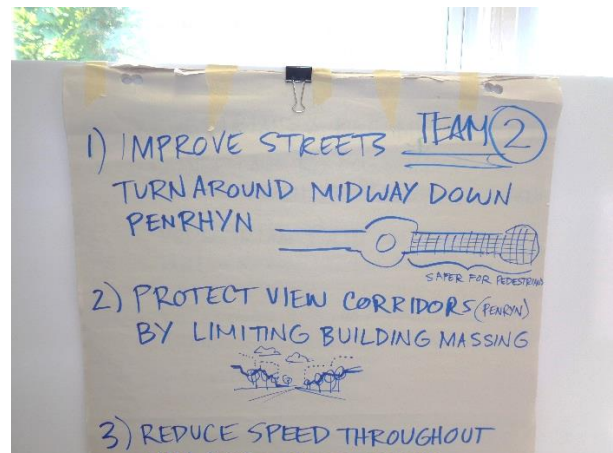 TEAM 2
1) IMPROVE STREETS
TURNAROUND MIDWAY DOWN
PENRHYN
SAFER FOR PEDESTRIANS
2) PROTECT VIEW CORRIDORS (PENRYN)
BY LIMITING BUILDING MASSING
3) REDUCE SPEED THROUGHOUT